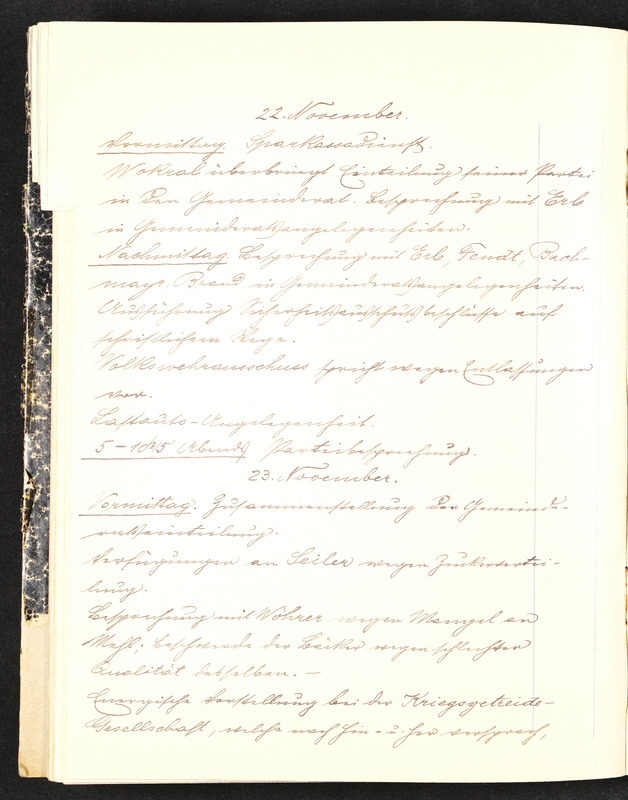 22. November.
Vormittag Sparkassadienst.
Wokral überbringt Einteilung seiner Partei
in den Gemeinderat. Besprechung mit Erb
in Gemeinderatsangelegenheiten.
Nachmittag Besprechung mit Erb, Fendt, Bach-
mayr, Brand in Gemeinderatsangelegenheiten.
Ausführung Sicherheitsausschußbeschlüsse auf
schriftlichem Wege.
Volkswehrausschuss spricht wegen Entlassungen
vor.
Lastauto-Angelegenheit.
5 - Abends Parteibesprechung.
23. November.
Vormittag. Zusammenstellung der Gemeinde-
ratseinteilung.
Verfügungen an Seiler wegen Zuckervertei-
lung.
Besprechung mit Wöhrer wegen Mangel an
Mehl; Beschwerde der Bäcker wegen schlechter
Qualität desselben. -
Energische Vorstellung bei der Kriegsgetreide-
Gesellschaft, welche nach hin- u. her versprach,